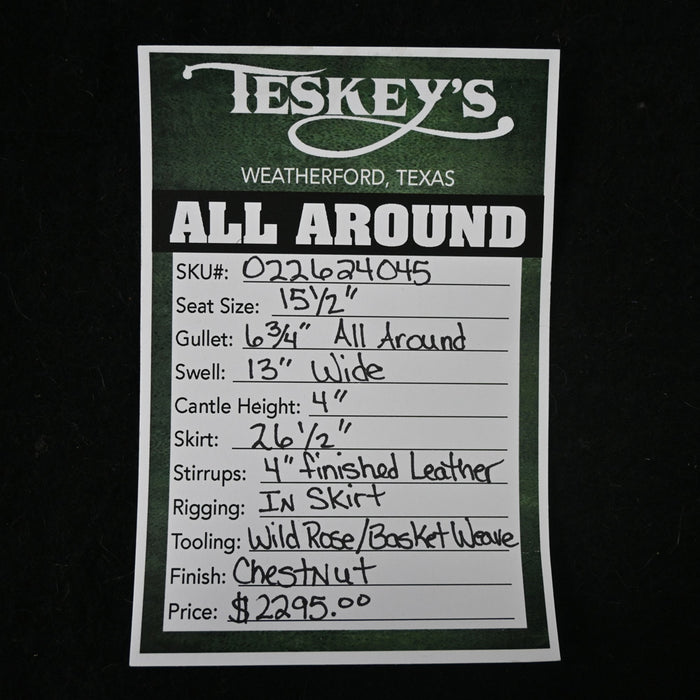 TESKEY'S
WEATHERFORD, TEXAS
ALL AROUND
SKU#: 022624045
Seat Size: 15 1/2"
Gullet: 6 3/4" All Around
Swell: 13" Wide
Cantle Height: 4"
Skirt: 26 1/2"
Stirrups: 4" finished Leather
Rigging: IN Skirt
Tooling: Wild Rose/Basket Weave
Finish: Chestnut
Price: $2295.00